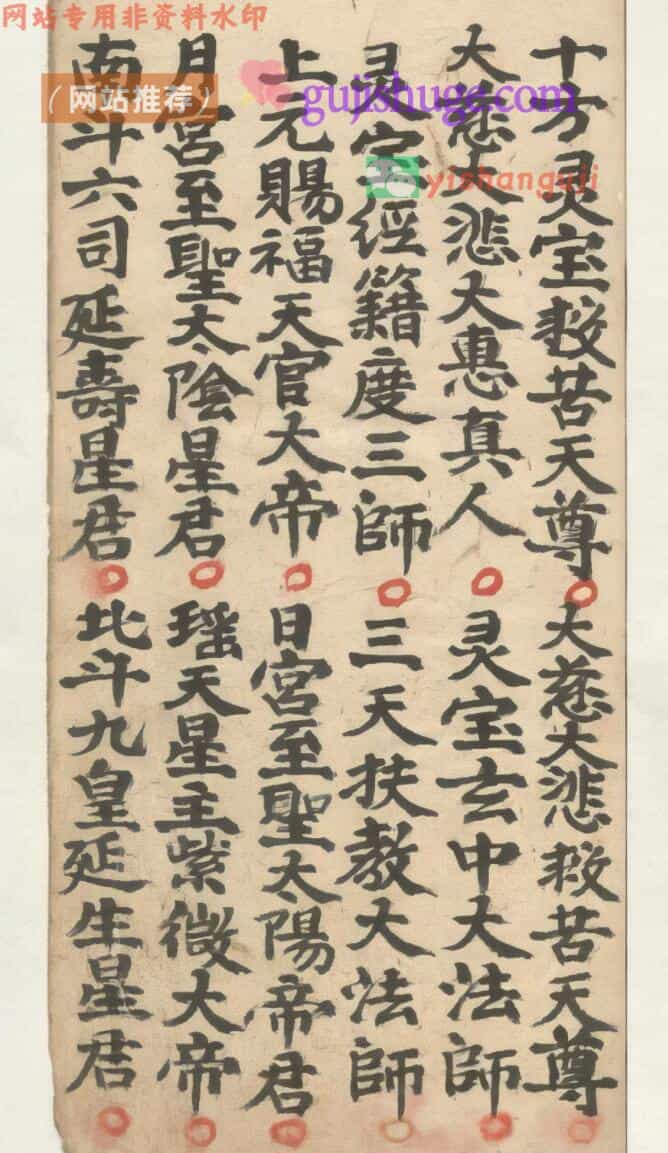 网站专用非资料水印
（网站推荐）
gujishuge.com
yishanguji
十方灵宝救苦天尊 大慈大悲救苦天尊
大慈大悲大惠真人 灵宝玄中大法师
灵宝经籍度三師 三天扶教大法師
上元賜福天官大帝 日宮至聖太陽帝君
月宮至聖太陰星君 瑶天星主紫微大帝
南斗六司延壽星君 北斗九皇延生星君